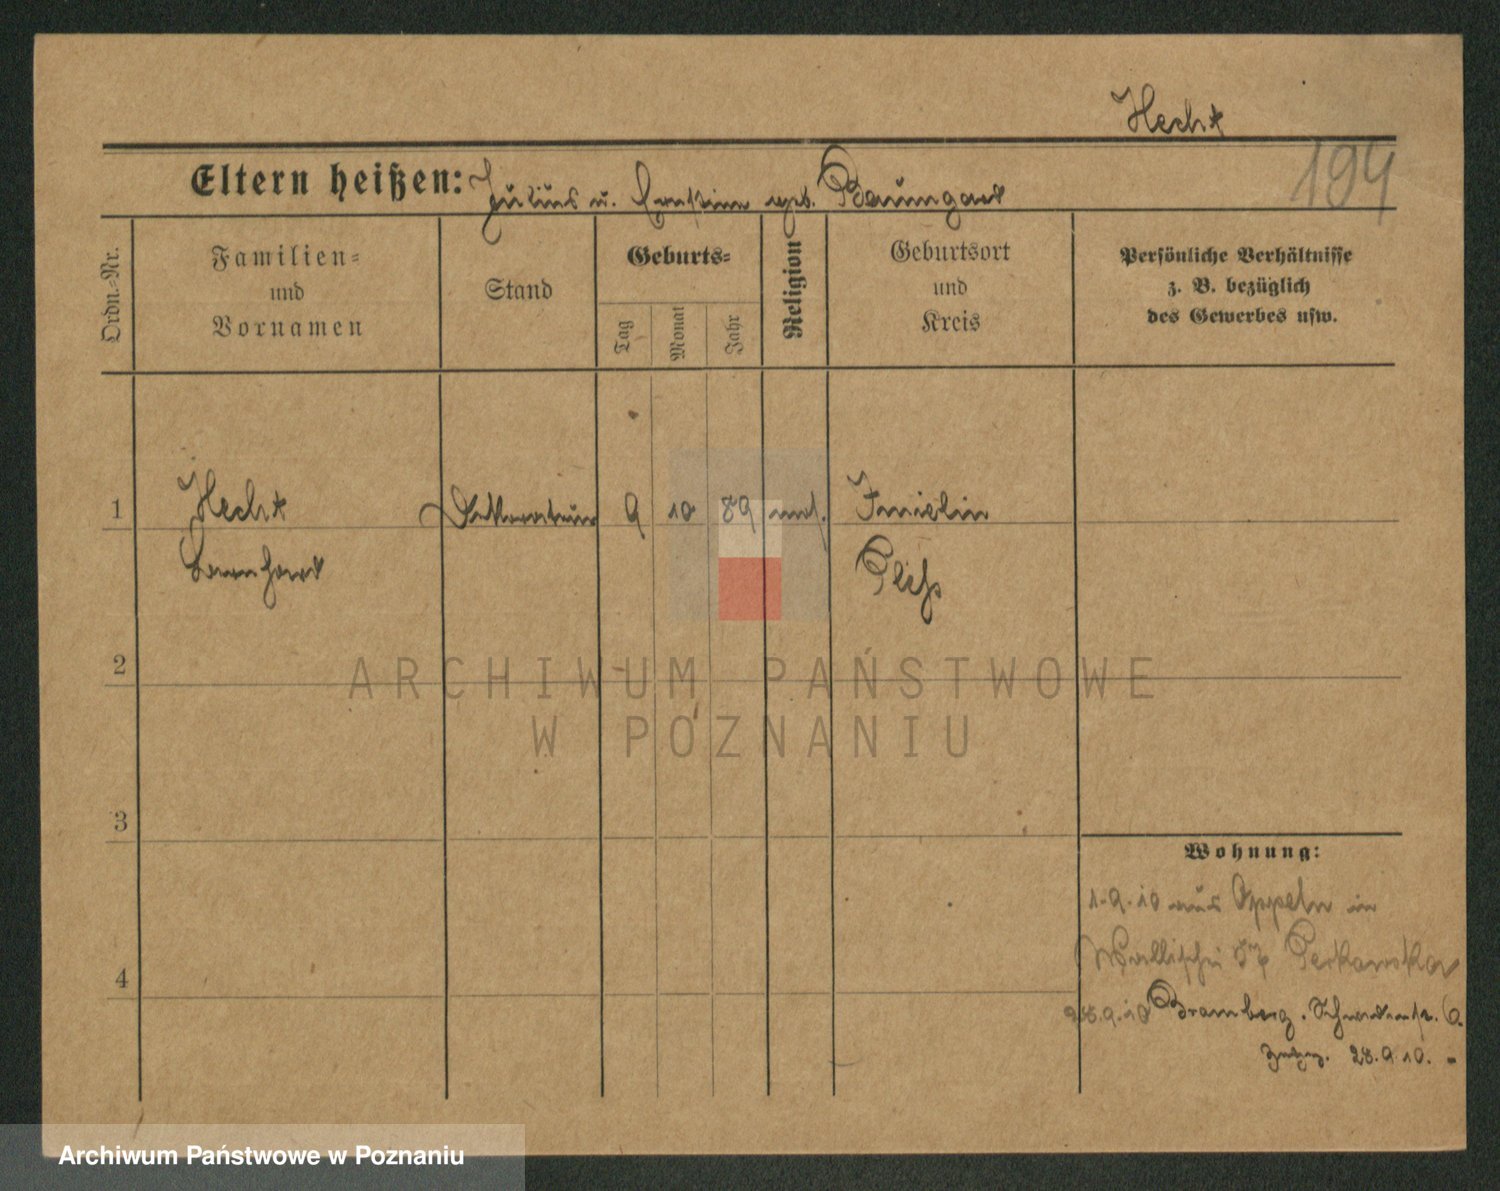 Hecht
194
Eltern heißen: Julius u. geb. Baumgart
Ordn.-Nr.
Familien-
und
Vornamen
Stand
Geburts-
Tag
Monat
Jahr
Religion
Geburtsort
und
Kreis
Persönliche Verhältnisse
z. B. bezüglich
des Gewerbes usw.
1
Hecht
Dekorateur
9
10
89
Imielin
Bernhard
Pleß
2
ARCHIWUM PAŃSTWOWE
W POZNANIU
3
4
Wohnung:
1.9.10 aus Oppeln in
Wallischei Piekarska
28.9.10 Bromberg. 6.
28.9.10.
Archiwum Państwowe w Poznaniu